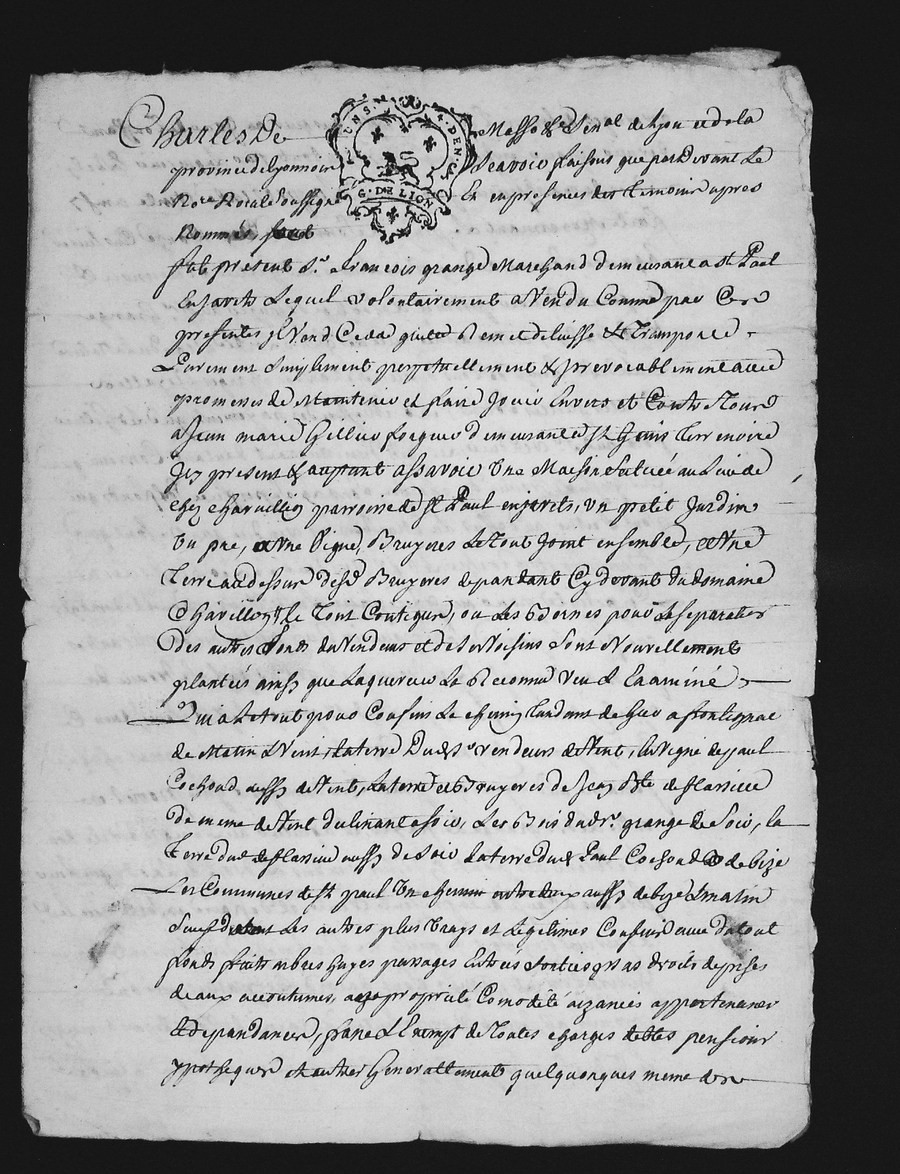 Charles De Masso &c Senal de Lyon et de la
UN S. 4. DEN. G. DE LION
province de lyonnois Scavoir faisons que pardevant Le
Nore Roial soussigné Et en presences des temoins apres
Nommés
fut present Sr. francois grange Marchand demeurant a St Paul
En Jarets Lequel volontairement a Vendu Comme par Ces
presentes il Vend Cede quitte Remet delaisse & Transporte
Purement Simplement perpetuellement & jrrevocablement avec
promesses de Maintenir et faire Jouir Envers et Contre Tous
a Jean marie Gillier demeurant a St Genis Terrenoire
Jcy present & acceptant assavoir Une Maison Scituée au Lieu de
chez Chavillion parroisse de St Paul en jarets, un petit Jardin
Un pre, et Une Vigne, Bruyeres Le Tout Joint ensemble, et Une
Terre au dessus desd Bruyeres depandant Cy devant du domaine
Chavillon le Tout Contigus, ou Les Bornes pour Le separatter
Des autres fonds du Vendeur et de Ses Voisins Sont Nouvellement
plantées ainsy que Laquereur La Reconnu Veu & Examiné
Qui a Le tout pour Confins Le chemin Tandant de a fontignac
de Matin & Vent, La terre Dud Sr vendeur de Vent, La Vigne de paul
Cochoud aussy de Vent, La terre et Bruyeres de Jean Bte de flassieu
De meme de Vent, Les Bois dud Sr. grange de Soir, la
Terre dud de flassieu aussy de Soir La terre dud Paul Cochoud de bize
Les Communes de St paul Un chemin entre deux aussy de bize & matin
Sauf dud tout Les autres plus Vrays et Legitimes Confins avec du tout
fonds fruits arbres hayes passages Entrées Sorties droits de prises
deaux accoutumes, propriété Comodité aizances appartenances
& depandances, franc & Exempt de Toutes charges debtes pensions
ypotheques et autres Generallement quelquonques meme des